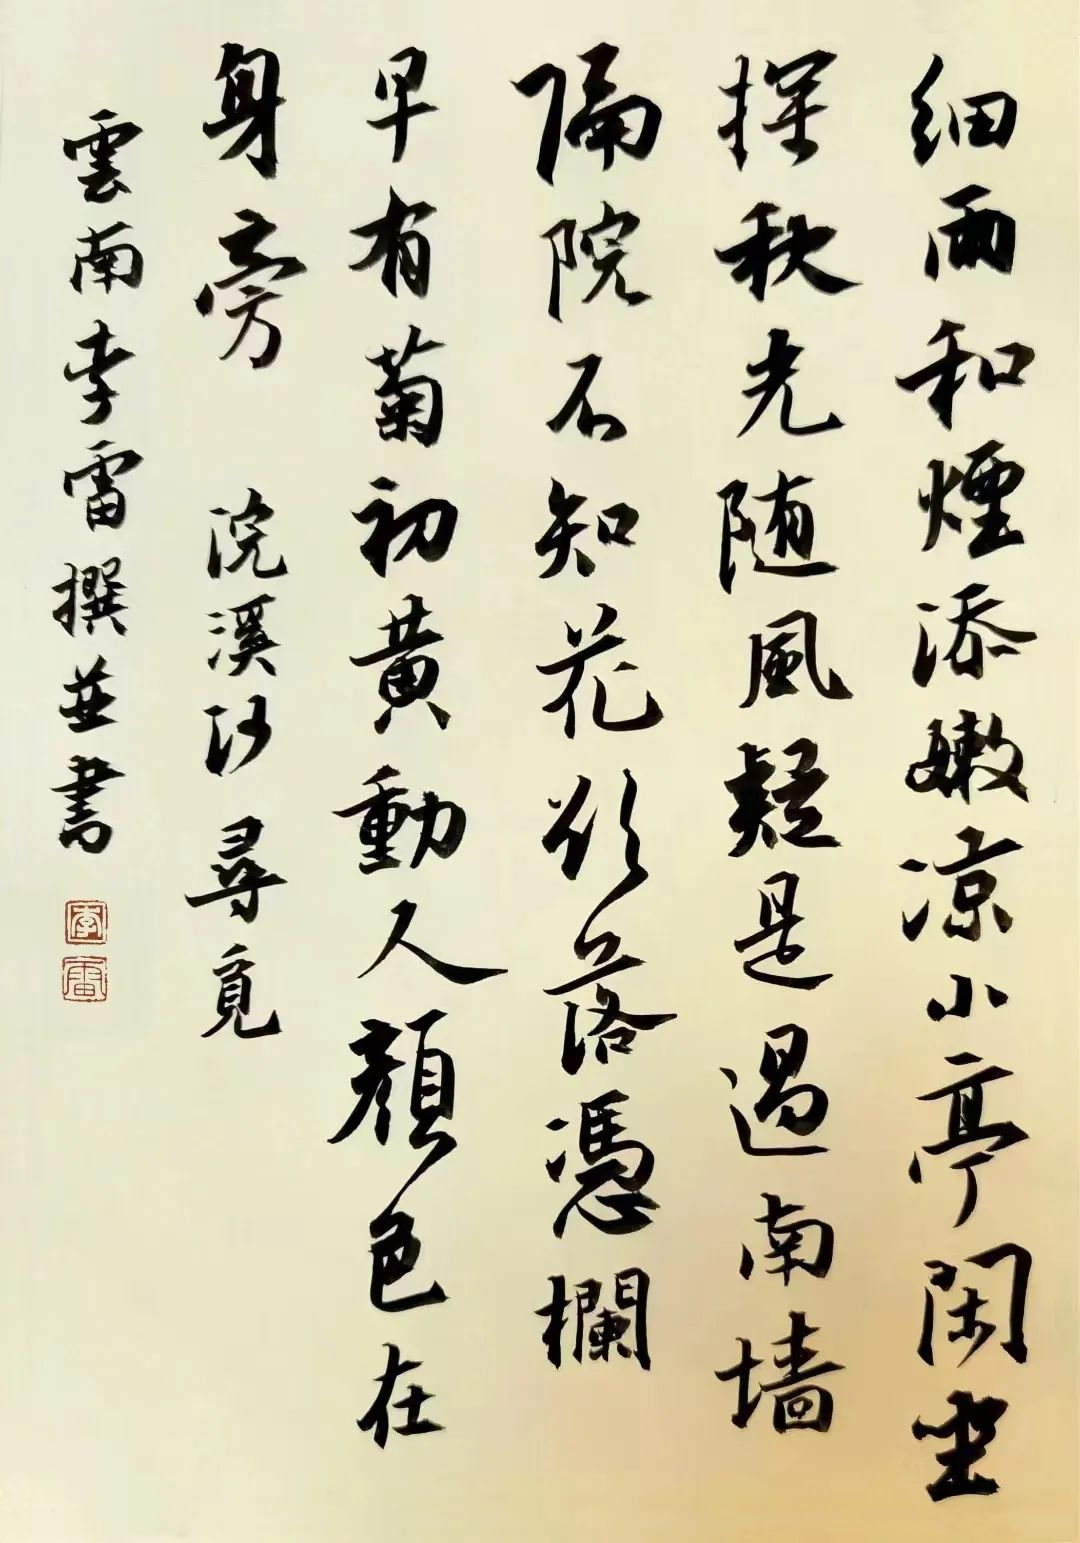 細雨和煙添嫩涼小亭閑坐
探秋光随風疑是過南墙
隔院不知花欲落憑欄
早有菊初黄動人顏色在
身旁 浣溪沙 尋覓
雲南李雷撰並書
李
雷